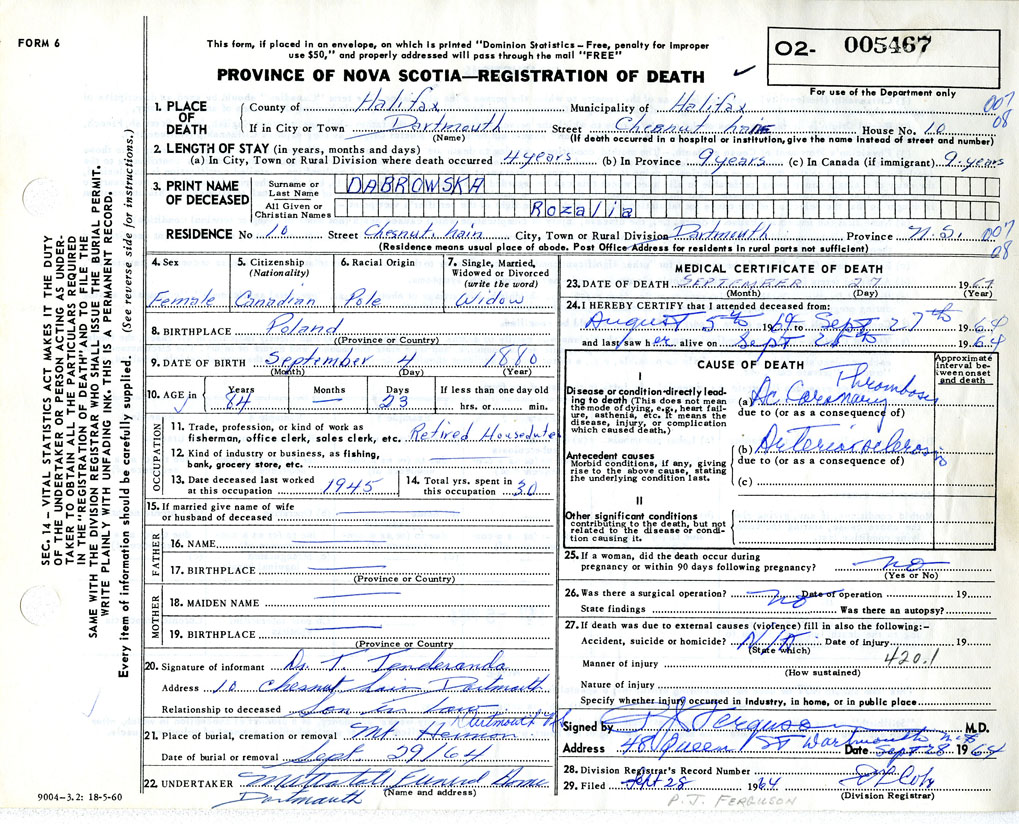 FORM 6
This form, if placed in an envelope, on which is printed "Dominion Statistics – Free, penalty for improper
use $50," and properly addressed will pass through the mail "FREE"
PROVINCE OF NOVA SCOTIA—REGISTRATION OF DEATH ✓
02- 005467
For use of the Department only
007
08
1. PLACE OF DEATH
County of Halifax Municipality of Halifax
If in City or Town Dartmouth Street Chesnut House No. 10
(Name) (If death occurred in a hospital or institution, give the name instead of street and number)
2. LENGTH OF STAY (in years, months and days)
(a) In City, Town or Rural Division where death occurred 4 years (b) In Province 9 years (c) In Canada (if immigrant) 9 years
3. PRINT NAME OF DECEASED
Surname or Last Name DABROWSKA
All Given or Christian Names Rozalia
RESIDENCE No 10 Street Chesnut City, Town or Rural Division Dartmouth Province N.S. 007
(Residence means usual place of abode. Post Office Address for residents in rural parts not sufficient) 08
4. Sex Female
5. Citizenship (Nationality) Canadian
6. Racial Origin Pole
7. Single, Married, Widowed or Divorced (write the word) Widow
8. BIRTHPLACE Poland
(Province or Country)
9. DATE OF BIRTH September 4 1880
(Month) (Day) (Year)
10. AGE in Years 84 Months — Days 23 If less than one day old
hrs. or min.
OCCUPATION
11. Trade, profession, or kind of work as
fisherman, office clerk, sales clerk, etc. Retired
12. Kind of industry or business, as fishing,
bank, grocery store, etc. —
13. Date deceased last worked
at this occupation 1945
14. Total yrs. spent in
this occupation 30
15. If married give name of wife
or husband of deceased —
FATHER
16. NAME —
17. BIRTHPLACE —
(Province or Country)
MOTHER
18. MAIDEN NAME —
19. BIRTHPLACE —
(Province or Country)
20. Signature of informant Dr. T. Tenderanda
Address 10 Chesnut Dartmouth
Relationship to deceased Son in law
Dartmouth
21. Place of burial, cremation or removal Mt Hermon
Date of burial or removal Sept 29/64
22. UNDERTAKER Funeral Home
(Name and address)
Dartmouth
9004-3.2: 18-5-60
MEDICAL CERTIFICATE OF DEATH
23. DATE OF DEATH SEPTEMBER 27 19
(Month) (Day) (Year)
24. I HEREBY CERTIFY that I attended deceased from:
August 5th 1964 to Sept 27th 1964
and last saw her alive on Sept 1964
CAUSE OF DEATH
Approximate interval between onset and death
I
Disease or condition directly leading to death (This does not mean the mode of dying, e.g., heart failure, asthenia, etc. It means the disease, injury, or complication which caused death.)
(a) Ac. Coronary Thrombosis
due to (or as a consequence of)
Antecedent causes
Morbid conditions, if any, giving rise to the above cause, stating the underlying condition last.
(b) Arteriosclerosis
due to (or as a consequence of)
(c)
II
Other significant conditions
contributing to the death, but not related to the disease or condition causing it.
25. If a woman, did the death occur during
pregnancy or within 90 days following pregnancy? no
(Yes or No)
26. Was there a surgical operation? no Date of operation 19
State findings Was there an autopsy?
27. If death was due to external causes (violence) fill in also the following:-
Accident, suicide or homicide? N/A Date of injury 19
(State which)
Manner of injury 420.1
(How sustained)
Nature of injury
Specify whether injury occurred in Industry, in home, or in public place
Signed by Ferguson M.D.
Address 48 Queen St Dartmouth N.S Date Sept 28 1964
28. Division Registrar's Record Number
29. Filed Sept 28 1964
(Division Registrar)
P. J. FERGUSON
SEC. 14 – VITAL STATISTICS ACT MAKES IT THE DUTY
OF THE UNDERTAKER OR PERSON ACTING AS UNDER-
TAKER TO OBTAIN ALL THE PARTICULARS REQUIRED
IN THE "REGISTRATION OF DEATH" AND TO FILE THE
SAME WITH THE DIVISION REGISTRAR WHO SHALL ISSUE THE BURIAL PERMIT.
WRITE PLAINLY WITH UNFADING INK. THIS IS A PERMANENT RECORD.
Every item of information should be carefully supplied. (See reverse side for instructions.)